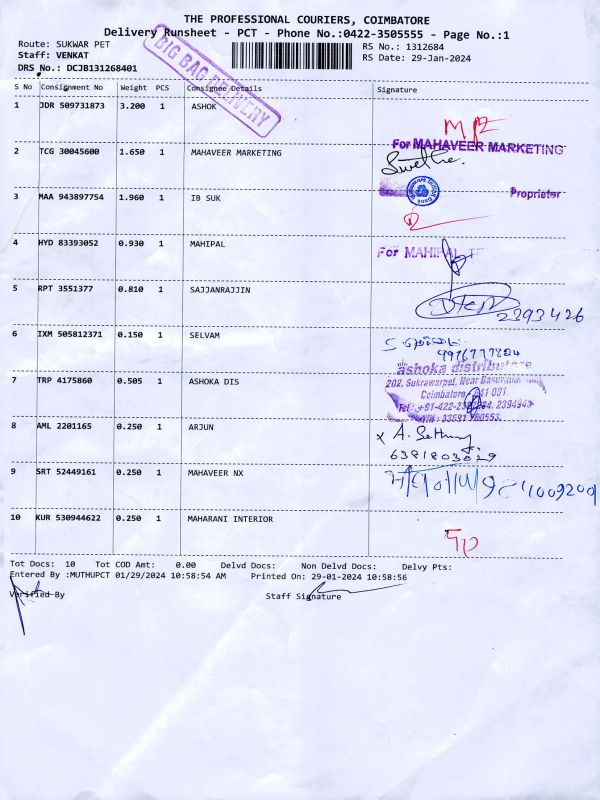 THE PROFESSIONAL COURIERS, COIMBATORE
Delivery Runsheet - PCT - Phone No.:0422-3505555 - Page No.:1
Route: SUKWAR PET
RS No.: 1312684
Staff: VENKAT
RS Date: 29-Jan-2024
DRS No.: DCJB131268401
BIG BAG DELIVERY
S No Consignment No Weight PCS Consignee Details Signature
1 JDR 509731873 3.200 1 ASHOK
2 TCG 30045600 1.650 1 MAHAVEER MARKETING
For MAHAVEER MARKETING
Swetha.
Proprietor
3 MAA 943897754 1.960 1 IB SUK
4 HYD 83393052 0.930 1 MAHIPAL
For MAHIPAL
5 RPT 3551377 0.810 1 SAJJANRAJJIN
2393426
6 IXM 505812371 0.150 1 SELVAM
9976777804
7 TRP 4175860 0.505 1 ASHOKA DIS
ashoka distributors
202, Sukrawarpet, Near
Coimbatore - 641 001.
8 AML 2201165 0.250 1 ARJUN
x A. Sethu
6381803029
9 SRT 52449161 0.250 1 MAHAVEER NX
10 KUR 530944622 0.250 1 MAHARANI INTERIOR
Tot Docs: 10 Tot COD Amt: 0.00 Delvd Docs: Non Delvd Docs: Delvy Pts:
Entered By :MUTHUPCT 01/29/2024 10:58:54 AM Printed On: 29-01-2024 10:58:56
Verified By Staff Signature